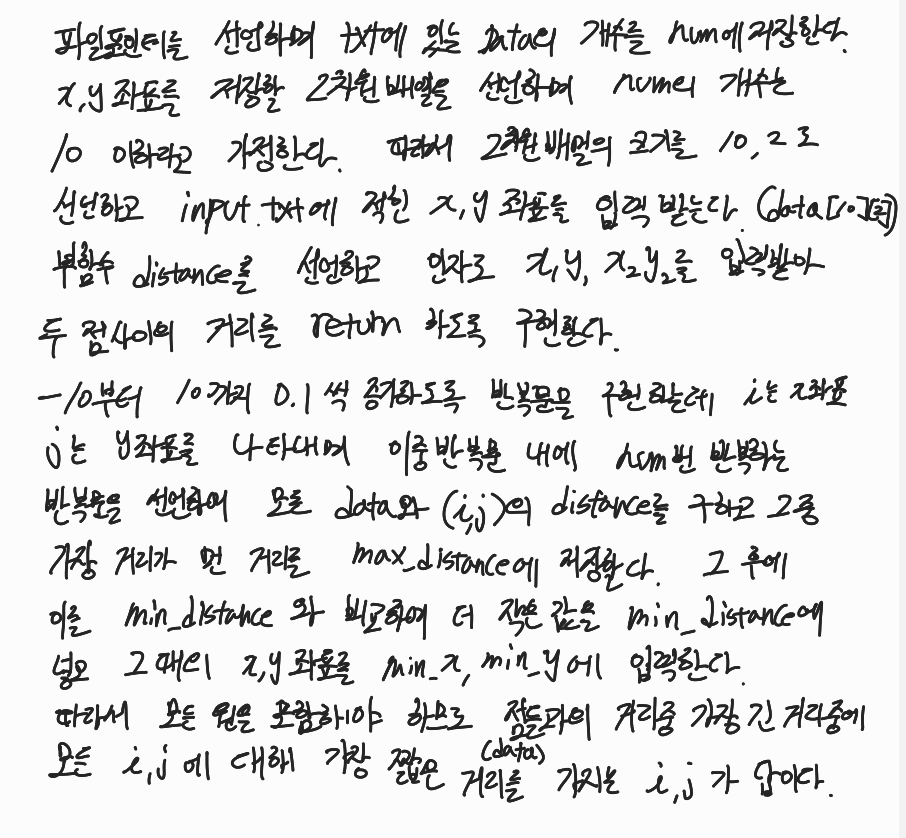 파일포인터를 선언하며 txt에 있는 Data의 개수를 num에 저장한다.
x,y 좌표를 저장할 2차원 배열을 선언하며 num의 개수는
10 이하라고 가정한다. 따라서 2차원 배열의 크기를 10, 2로
선언하고 input.txt에 적힌 x,y 좌표를 입력 받는다. (data[10][2])
부함수 distance을 선언하고 인자로 x,y, x2y2를 입력받아
두 점사이의 거리를 return 하도록 구현한다.
-10부터 10까지 0.1 씩 증가하도록 반복문을 구현하는데 i는 x좌표
j는 y좌표를 나타내며 이중 반복문 내에 num번 반복하는
반복문을 선언하여 모든 data와 (i,j)의 distance를 구하고 그중
가장 거리가 먼 거리를 max_distance에 저장한다. 그 후에
이를 min_distance 와 비교하여 더 작은 값을 min_distance에
넣고 그때의 x,y 좌표를 min_x, min_y에 입력한다.
따라서 모든 원을 포함해야 하므로 점들과의 거리중 가장 긴 거리중에
(data)
모든 i,j에 대해 가장 짧은 거리를 가지는 i,j가 답이다.